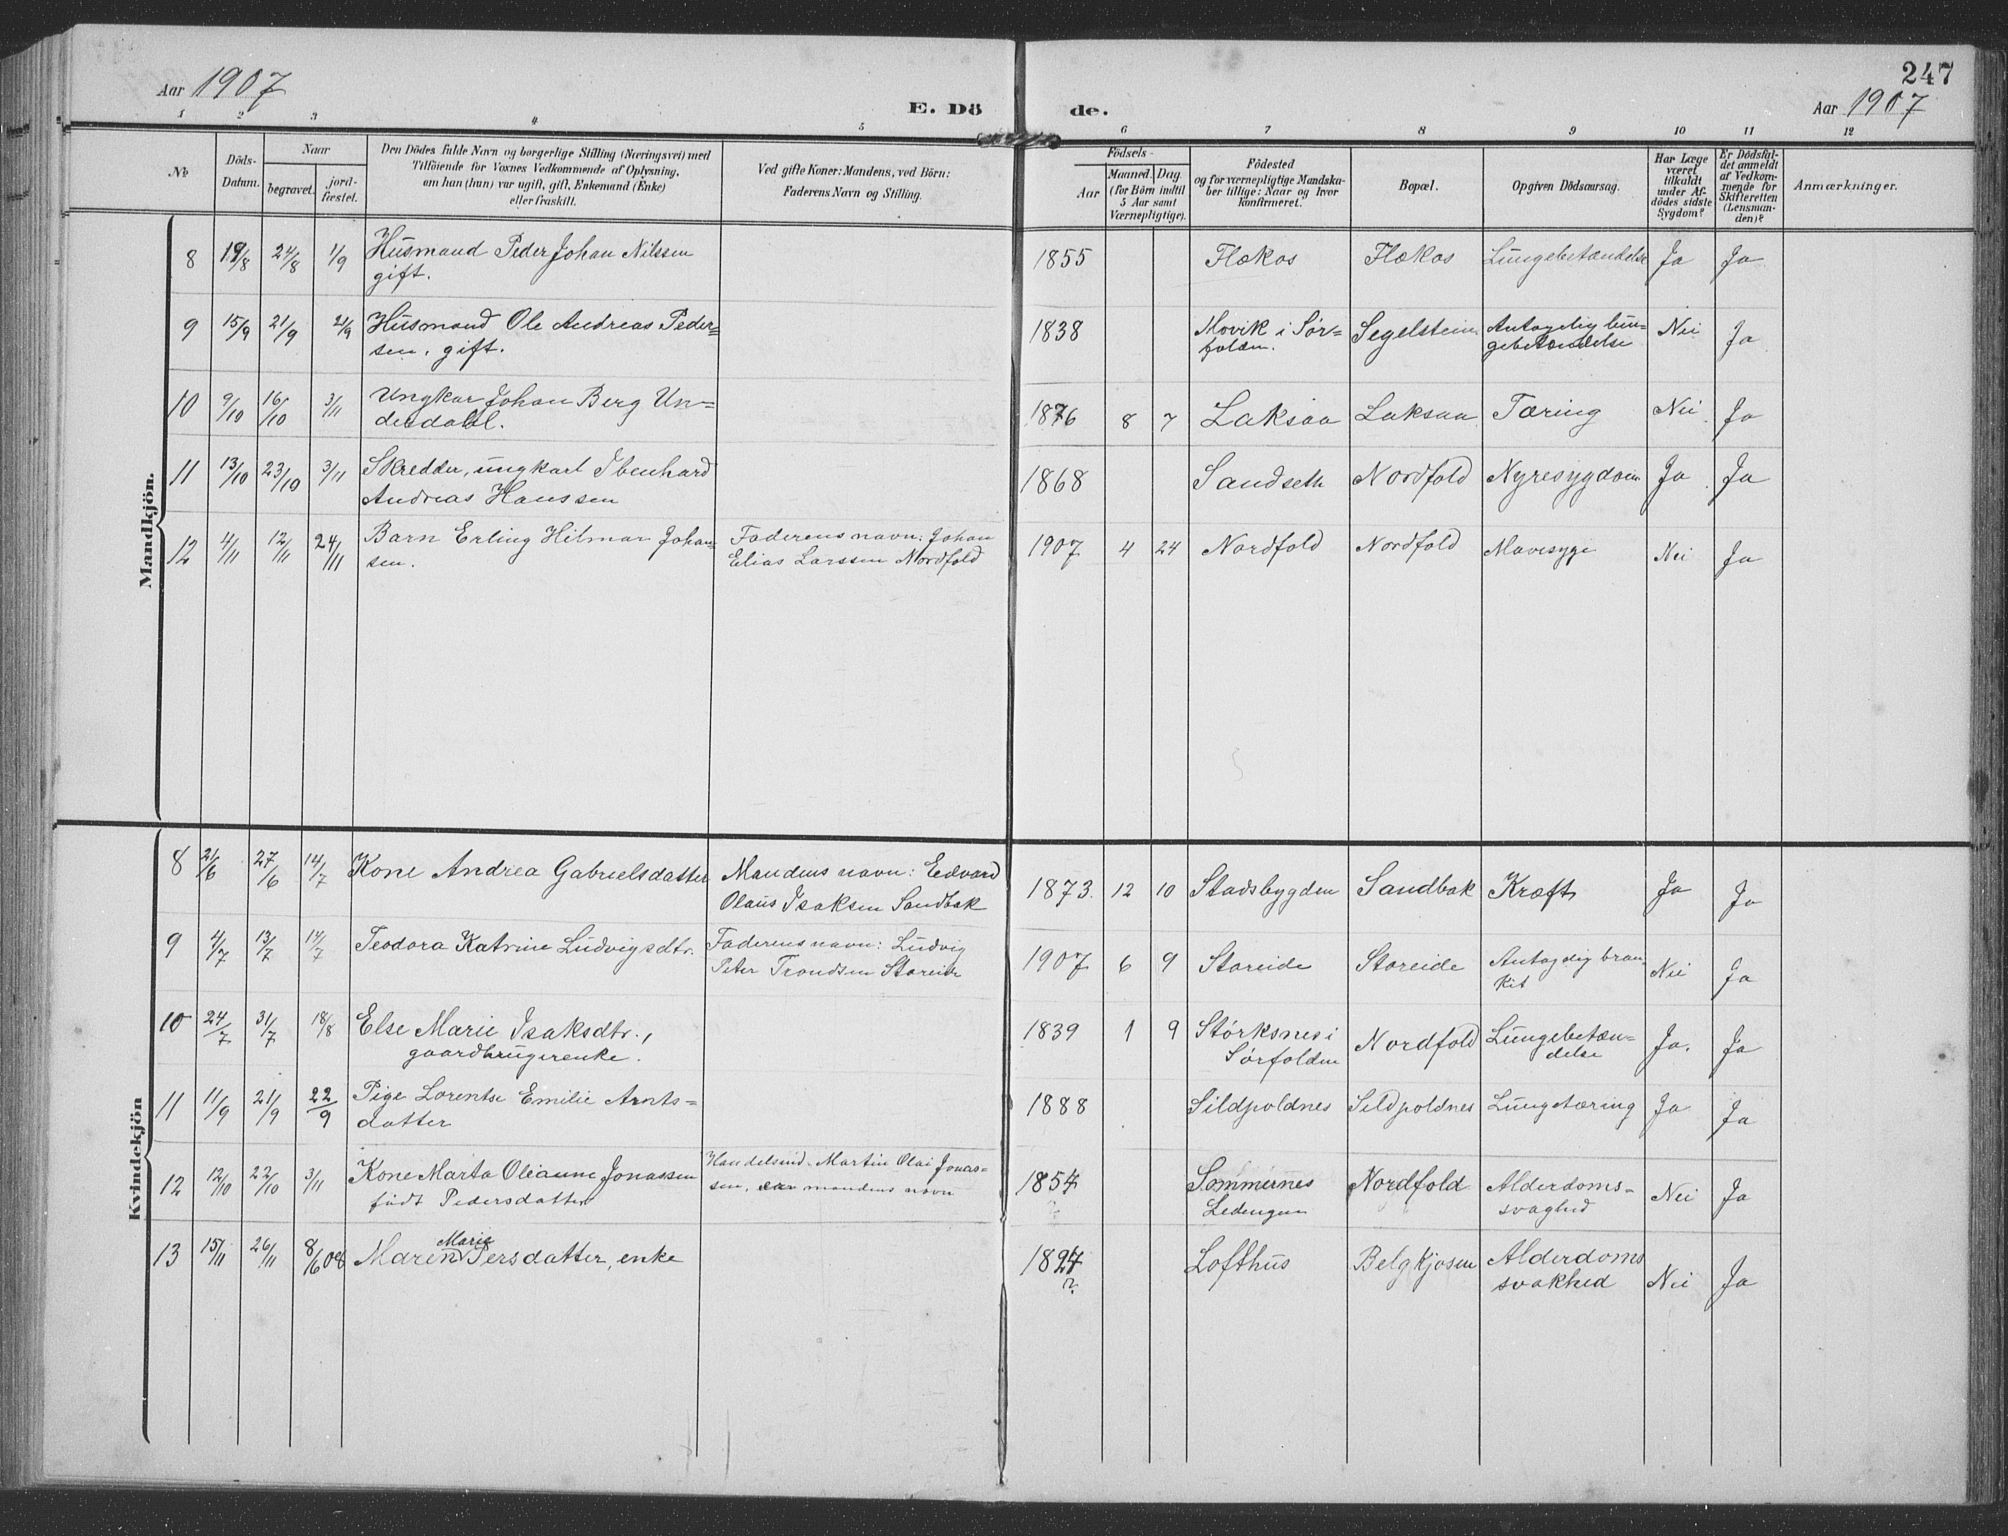 247
Aar 1907
E. Dö
de.
Aar 1907
1 2 3 4 5 6 7 8 9 10 11 12
№
Döds-
Datum.
Naar
begravet.
jord-
fæstet.
Den Dödes fulde Navn og borgerlige Stilling (Næringsvei) med
Tilföiende for Voxnes Vedkommende af Oplysning,
om han (hun) var ugift, gift, Enkemand (Enke)
eller fraskilt.
Ved gifte Koner: Mandens, ved Börn:
Faderens Navn og Stilling.
Födsels-
Aar
Maaned. Dag
(for Börn indtil
5 Aar samt
Værnepligtige).
Födested
og for værnepligtige Mandska-
ber tillige: Naar og hvor
konfirmeret.
Bopæl.
Opgiven Dödsaarsag.
Har Læge
været
tilkaldt
under Af-
dödes sidste
Sygdom?
Er Dödsfal-
det anmeldt
af Vedkom-
mende for
Skifteretten
(Lensman-
den)?
Anmærkninger.
Mandkjön.
8 19/8 24/8 1/9 Husmand Peder Johan Nilssen 1855 Flækos Flækos Lungebetændelse Ja Ja
gift.
9 15/9 21/9 21/9 Husmand Ole Andreas Peder= 1838 Movik i Sør= Segelstein Antagelig lun= Nei Ja
sen, gift. folden. gebetændelse
10 9/10 16/10 3/11 Ungkar Johan Berg Un= 1876 8 7 Laksaa Laksaa Tæring Nei Ja
dersdahl.
11 13/10 23/10 3/11 Skredder, ungkarl Ibenhard 1868 Sandseth Nordfold Nyresygdom Ja Ja
Andreas Hanssen
12 4/11 12/11 24/11 Barn Erling Hilmar Johan= Faderens navn: Johan 1907 4 24 Nordfold Nordfold Mavesyge Nei Ja
sen. Elias Larssen Nordfold
Kvindekjön
8 21/6 27/6 14/7 Kone Andrea Gabrielsdatter Mandens navn: Edvard 1873 12 10 Stadsbygden Sandbak Kræft Ja Ja
Olaus Isaksen Sandbak
9 4/7 13/7 14/7 Teodora Katrine Ludvigsdtr. Faderens navn: Ludvig 1907 6 9 Storeide Storeide Antagelig bron= Nei Ja
Peter Trondsen Storeide kit
10 24/7 31/7 18/8 Else Marie Isaksdtr., 1839 1 9 Størksnes i Nordfold Lungebetæn= Ja. Ja
gaardbrugerenke. Sørfolden delse
11 11/9 21/9 22/9 Pige Lorentse Emilie Arnts= 1888 Sildpoldnes Sildpoldnes Lungetæring Ja Ja
datter
12 12/10 22/10 3/11 Kone Marta Oleanne Jonassen Handelsmd. Martin Olai Jonas= 1854 Sommernes Nordfold Alderdoms= Nei Ja
født Pedersdatter sen, mandens navn Ledengen svaghed
13 15/11 26/11 8/6 08 Maren Marie Persdatter, enke 1827 Lofthus Belgkjosen Alderdoms Nei Ja
? svakhed